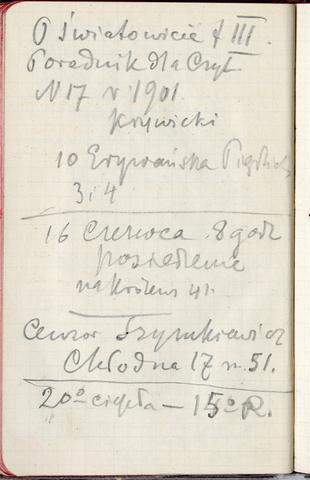 O Światowicie t III.
Poradnik dla Czyt.
N 17 r 1901.
Krzywicki
10 Erywańska
3 i 4
16 Czerwca 8 godz
posiedzenie
na Królews 41.
Cenzor Szymkiewicz
Chłodna 17 m. 51.
20° ciepła — 15° R.